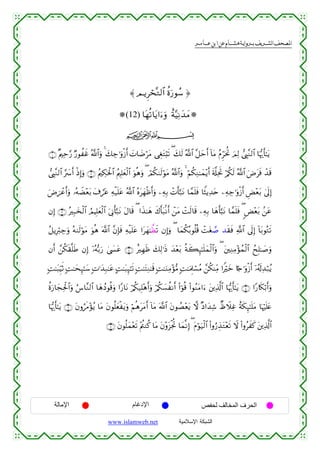 المصحف الشريف برواية هشام عن ابن عامر
﴿ سُورَةُ ٱلتَّحْرِيمِ ﴾
*مَدَنِيَّةٌ وَءَايَاتُهَا (12)*
بِسْمِ ٱللَّهِ ٱلرَّحْمَٰنِ ٱلرَّحِيمِ
يَٰٓأَيُّهَا ٱلنَّبِىُّ لِمَ تُحَرِّمُ مَآ أَحَلَّ ٱللَّهُ لَكَ ۖ تَبْتَغِى مَرْضَاتَ أَزْوَٰجِكَ ۚ وَٱللَّهُ غَفُورٌ رَّحِيمٌ ۝١
قَدْ فَرَضَ ٱللَّهُ لَكُمْ تَحِلَّةَ أَيْمَٰنِكُمْ ۚ وَٱللَّهُ مَوْلَىٰكُمْ ۖ وَهُوَ ٱلْعَلِيمُ ٱلْحَكِيمُ ۝٢ وَإِذْ أَسَرَّ ٱلنَّبِىُّ
إِلَىٰ بَعْضِ أَزْوَٰجِهِۦ حَدِيثًا فَلَمَّا نَبَّأَتْ بِهِۦ وَأَظْهَرَهُ ٱللَّهُ عَلَيْهِ عَرَّفَ بَعْضَهُۥ وَأَعْرَضَ
عَنۢ بَعْضٍ ۖ فَلَمَّا نَبَّأَهَا بِهِۦ قَالَتْ مَنْ أَنۢبَأَكَ هَٰذَا ۖ قَالَ نَبَّأَنِىَ ٱلْعَلِيمُ ٱلْخَبِيرُ ۝٣ إِن
تَتُوبَآ إِلَى ٱللَّهِ فَقَد صَّغَتْ قُلُوبُكُمَا ۖ وَإِن تَظَّٰهَرَا عَلَيْهِ فَإِنَّ ٱللَّهَ هُوَ مَوْلَىٰهُ وَجِبْرِيلُ
وَصَٰلِحُ ٱلْمُؤْمِنِينَ ۖ وَٱلْمَلَٰٓئِكَةُ بَعْدَ ذَٰلِكَ ظَهِيرٌ ۝٤ عَسَىٰ رَبُّهُۥٓ إِن طَلَّقَكُنَّ أَن
يُبْدِلَهُۥٓ أَزْوَٰجًا خَيْرًا مِّنكُنَّ مُسْلِمَٰتٍ مُّؤْمِنَٰتٍ قَٰنِتَٰتٍ تَٰٓئِبَٰتٍ عَٰبِدَٰتٍ سَٰٓئِحَٰتٍ ثَيِّبَٰتٍ
وَأَبْكَارًا ۝٥ يَٰٓأَيُّهَا ٱلَّذِينَ ءَامَنُوا۟ قُوٓا۟ أَنفُسَكُمْ وَأَهْلِيكُمْ نَارًا وَقُودُهَا ٱلنَّاسُ وَٱلْحِجَارَةُ
عَلَيْهَا مَلَٰٓئِكَةٌ غِلَاظٌ شِدَادٌ لَّا يَعْصُونَ ٱللَّهَ مَآ أَمَرَهُمْ وَيَفْعَلُونَ مَا يُؤْمَرُونَ ۝٦ يَٰٓأَيُّهَا
ٱلَّذِينَ كَفَرُوا۟ لَا تَعْتَذِرُوا۟ ٱلْيَوْمَ ۖ إِنَّمَا تُجْزَوْنَ مَا كُنتُمْ تَعْمَلُونَ ۝٧
الحرف المخالف لحفص الإدغام الإمالة
الشبكة الإسلامية www.islamweb.net